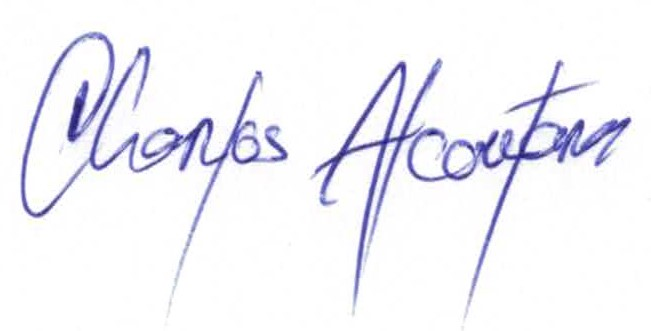 Charles Alcantara